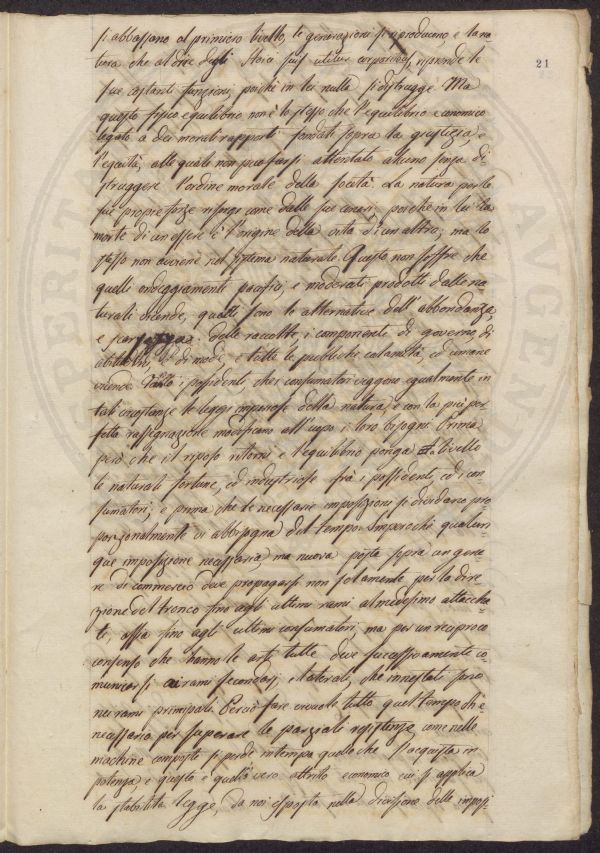 si abbassano al primiero livello, le generazioni si riproducono, e la na
tura che al dire degli Stoici riprende le
sue costanti funzioni, poiché in lei nulla si distrugge. Ma
questo fisico equilibrio non è lo stesso che l'equilibrio economico
legato a dei morali rapporti fondati sopra la giustizia, e
l'equità; alle quali non può farsi attentato alcuno senza di
struggere l'ordine morale della società. La natura per le
sue proprie forze risorge come dalle sue ceneri, perché in lei la
morte di un essere è l'origine della vita di un altro; ma lo
stesso non avviene nel sistema naturale. Questo non soffre che
quelli ondeggiamenti pacifici, e moderati prodotti dalle na
turali vicende, quali sono le alternative dell'abbondanza,
e scarsezza delle raccolte, i di governo, di
abitudini, di mode, e tutte le pubbliche calamità, ed umane
vicende. Tanto i possidenti che i consumatori veggono egualmente in
tali circostanze le leggi imperiose della natura, e con la più per
fetta rassegnazione modificano all'uopo i loro bisogni. Prima
però che il riposo ritorni e l'equilibrio ponga a livello
le naturali fortune, ed industriose frà i possidenti, ed i con
sumatori; e prima che le necessarie imposizioni si dividano pro
porzionalmente vi abbisogna del tempo. Imperocché qualun
que imposizione necessaria, ma nuova posta sopra un gene
re di commercio deve propagarsi non solamente per la dire
zione del tronco sino agli ultimi rami al medesimo attacca
ti, ossia sino agli ultimi consumatori, ma per un reciproco
consenso che hanno le arti tutte deve successivamente co
municarsi ai rami secondarj, e laterali, che innestati sono
nei rami principali. Perciò fare vi vuole tutto quel tempo ch'è
necessario per superare le parziali resistenze, come nelle
machine composte si perde in tempo quello che s'acquista in
potenza, e questo è quello vero attrito economico cui si applica
la stabilita legge, da noi esposta nella divisione delle imposi-
21